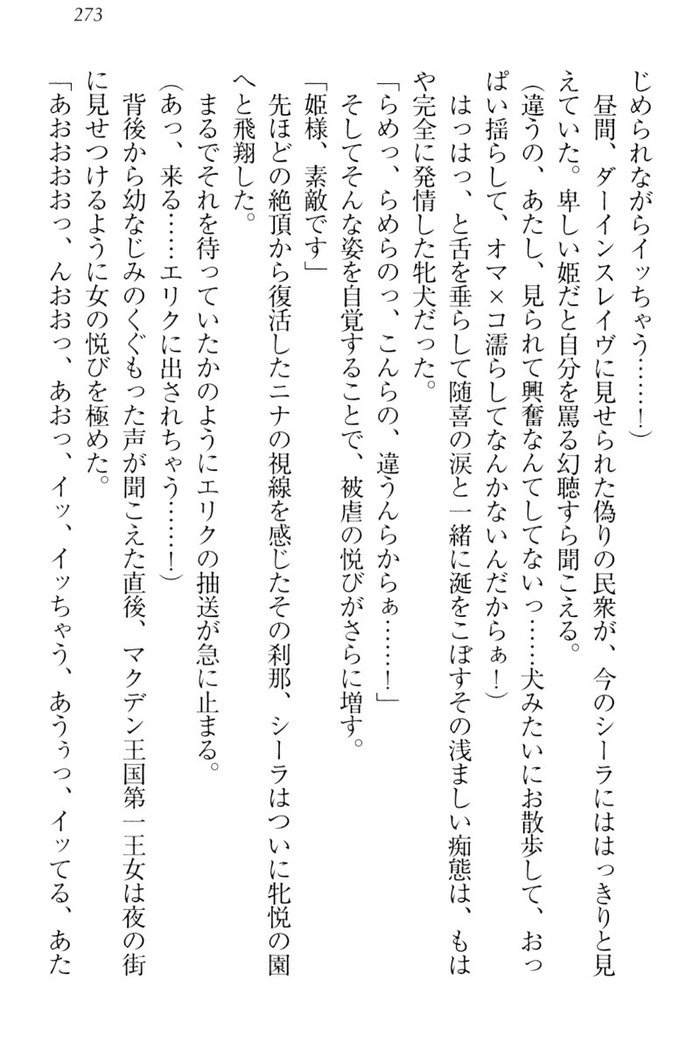 273
じめられながらイッちゃう……！）
昼間、ダーインスレイヴに見せられた偽りの民衆が、今のシーラにははっきりと見
えていた。卑しい姫だと自分を罵る幻聴すら聞こえる。
（違うの、あたし、見られて興奮なんてしてないっ……犬みたいにお散歩して、おっ
ぱい揺らして、オマ×コ濡らしてなんかないんだからぁ！）
はっはっ、と舌を垂らして随喜の涙と一緒に涎をこぼすその浅ましい痴態は、もは
や完全に発情した牝犬だった。
「らめっ、らめらのっ、こんらの、違うんらからぁ……！」
そしてそんな姿を自覚することで、被虐の悦びがさらに増す。
「姫様、素敵です」
先ほどの絶頂から復活したニナの視線を感じたその刹那、シーラはついに牝悦の園
へと飛翔した。
まるでそれを待っていたかのようにエリクの抽送が急に止まる。
（あっ、来る……エリクに出されちゃう……！）
背後から幼なじみのくぐもった声が聞こえた直後、マクデン王国第一王女は夜の街
に見せつけるように女の悦びを極めた。
「あおおおおっ、んおおっ、あおっ、イッ、イッちゃう、あうぅっ、イッてる、あた